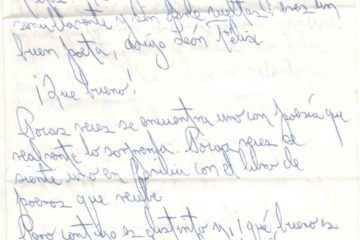 simplemente y sin darle vueltas: eres un
buen poeta, amigo León Félix.
¡Que bueno!
Pocas veces se encuentra uno con poesía que
realmente lo sorprenda. Pocas veces se
siente uno en familia con el libro de
poemas que recibe.
Pero contigo es distinto y, ¡qué bueno es